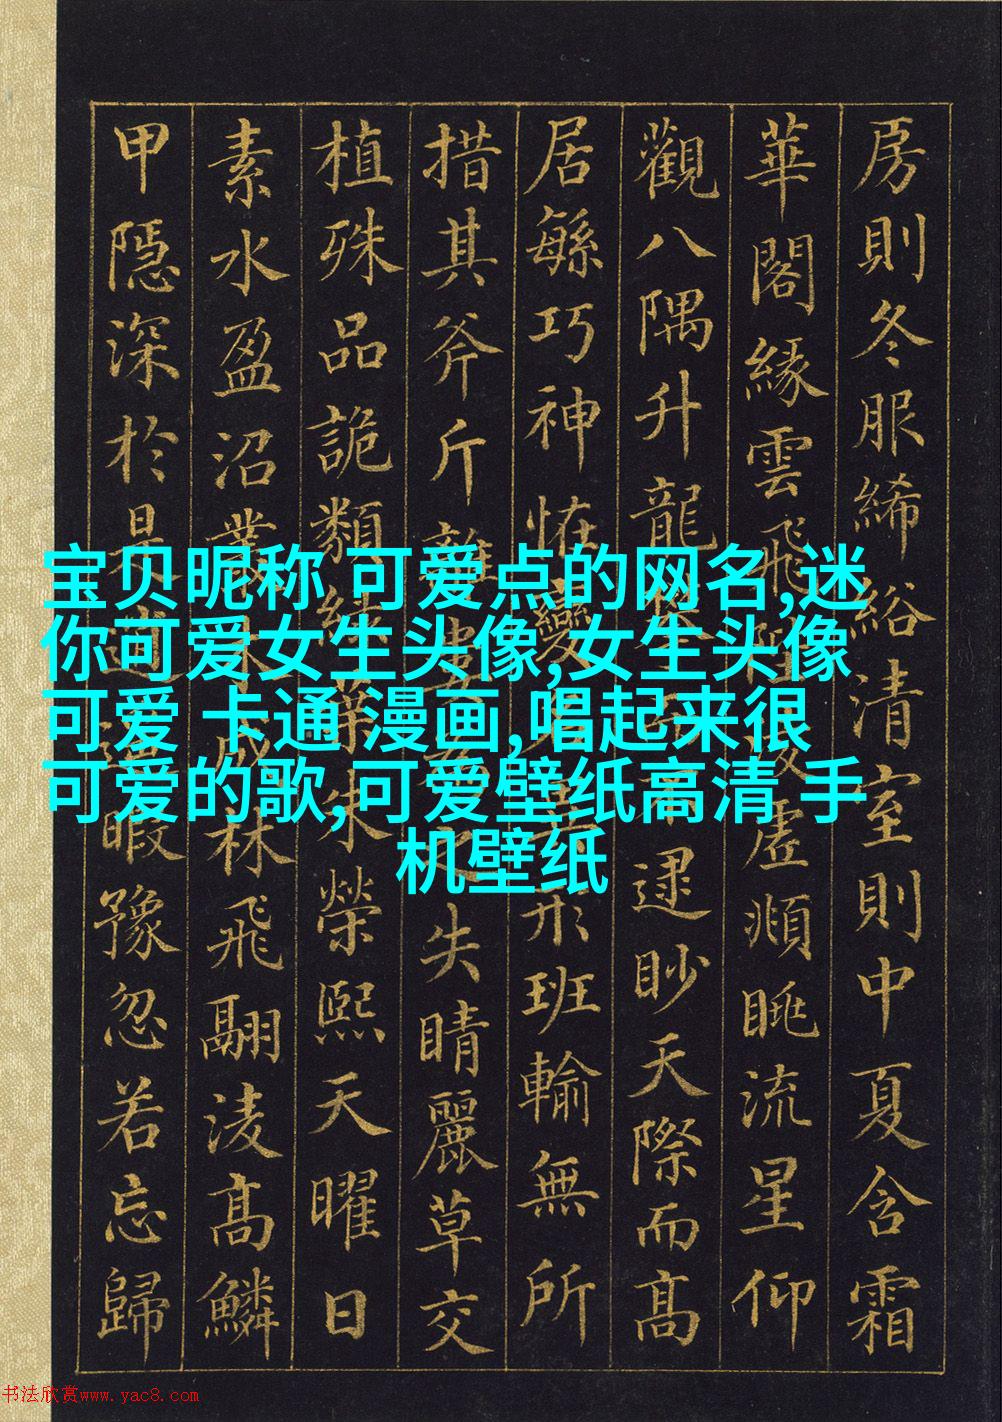 房則冬服絺綌清室則中夏含霜
華閣緣雲飛陛陵虛頫眺流星仰
觀八隅升龍逮眇天際而高
居緐巧神恠變形班輸無所
措其斧斤離失睛麗草交
植殊品詭類朱榮熙天曜日
素水盈沼叢成林飛翮淩髙鱗
甲隱深於是遙暇豫忽若忘歸
宝贝昵称 可爱点的网名,迷
你可爱女生头像,女生头像
可爱 卡通 漫画,唱起来很
可爱的歌,可爱壁纸高清 手
机壁纸
书法欣赏www.yac8.com